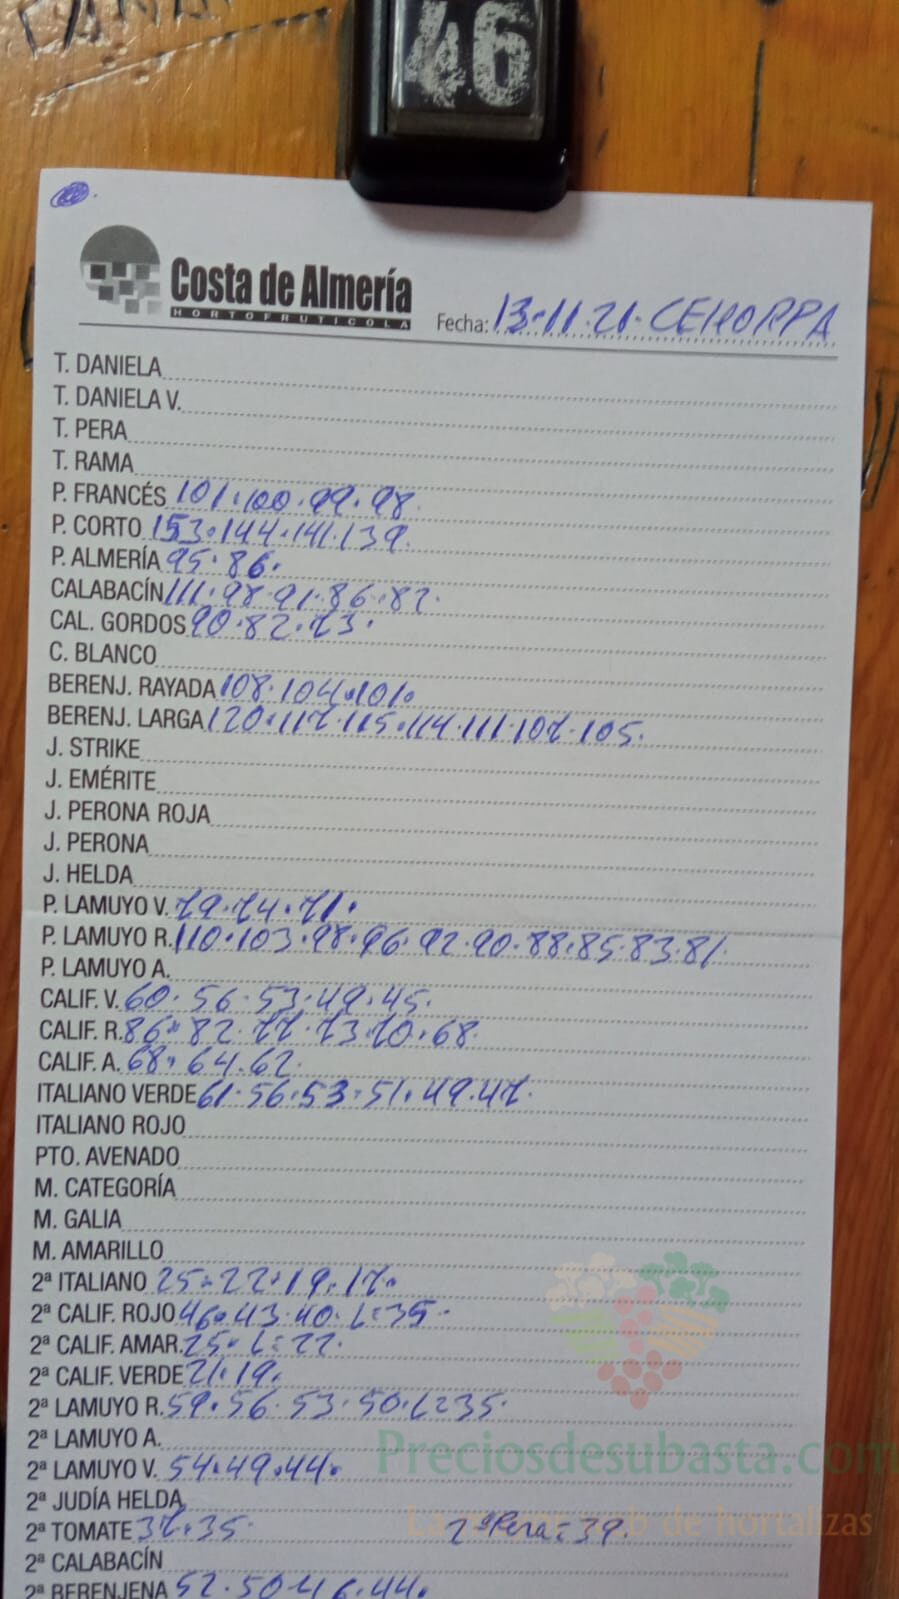 46
Costa de Almería
HORTOFRUTICOLA
Fecha: 13-11-21. CEHORPA
T. DANIELA
T. DANIELA V.
T. PERA
T. RAMA
P. FRANCÉS 101.100.99.98
P. CORTO 153.144.141.139.
P. ALMERÍA 95.86.
CALABACÍN 111.98.91.86.82.
CAL. GORDOS 90.82.73.
C. BLANCO
BERENJ. RAYADA 108.104.101.
BERENJ. LARGA 120.117.115.114.111.107.105.
J. STRIKE
J. EMÉRITE
J. PERONA ROJA
J. PERONA
J. HELDA
P. LAMUYO V. 79.74.71.
P. LAMUYO R. 110.103.98.96.92.90.88.85.83.81.
P. LAMUYO A.
CALIF. V. 60.56.53.49.45.
CALIF. R. 86.82.77.73.70.68.
CALIF. A. 68.64.62.
ITALIANO VERDE 61.56.53.51.49.47.
ITALIANO ROJO
PTO. AVENADO
M. CATEGORÍA
M. GALIA
M. AMARILLO
2ª ITALIANO 25.22.19.17.
2ª CALIF. ROJO 46.43.40.L=35.
2ª CALIF. AMAR. 25.L=22.
2ª CALIF. VERDE 21.19.
2ª LAMUYO R. 59.56.53.50.L=35.
2ª LAMUYO A.
Preciosdesubasta.com
2ª LAMUYO V. 54.49.44.
2ª JUDÍA HELDA
2ª TOMATE 37.35. 2ª Pera=39.
La web de hortalizas
2ª CALABACÍN
2ª BERENJENA 52.50.46.44.